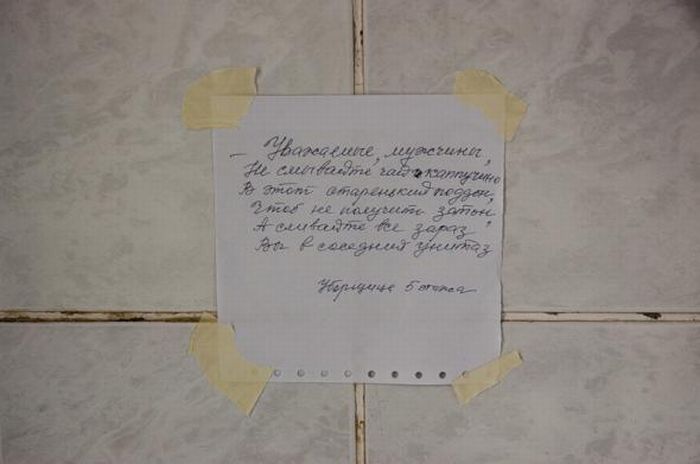 – Уважаемые мужчины,
Не смывайте чай, каппучино
В этот старенький поддон,
Чтоб не получить затон
А сливайте все зараз
Вы в соседний унитаз
Уборщица 5 этажа